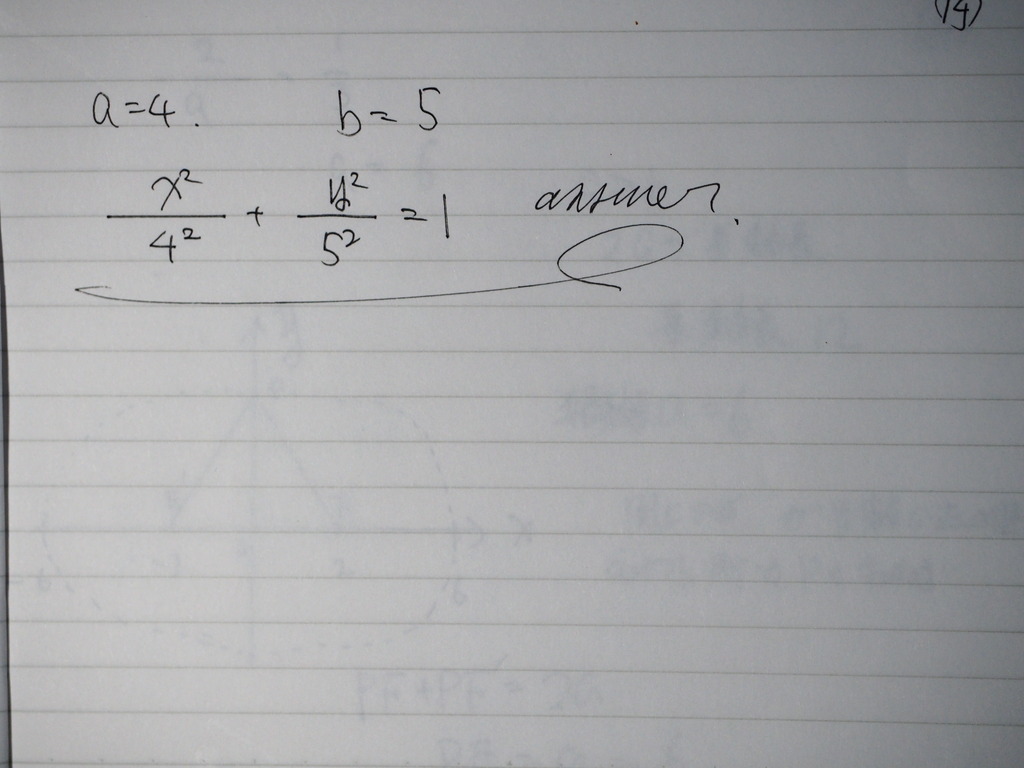 (14)
a=4. b=5
x²/4² + y²/5² = 1 answer.